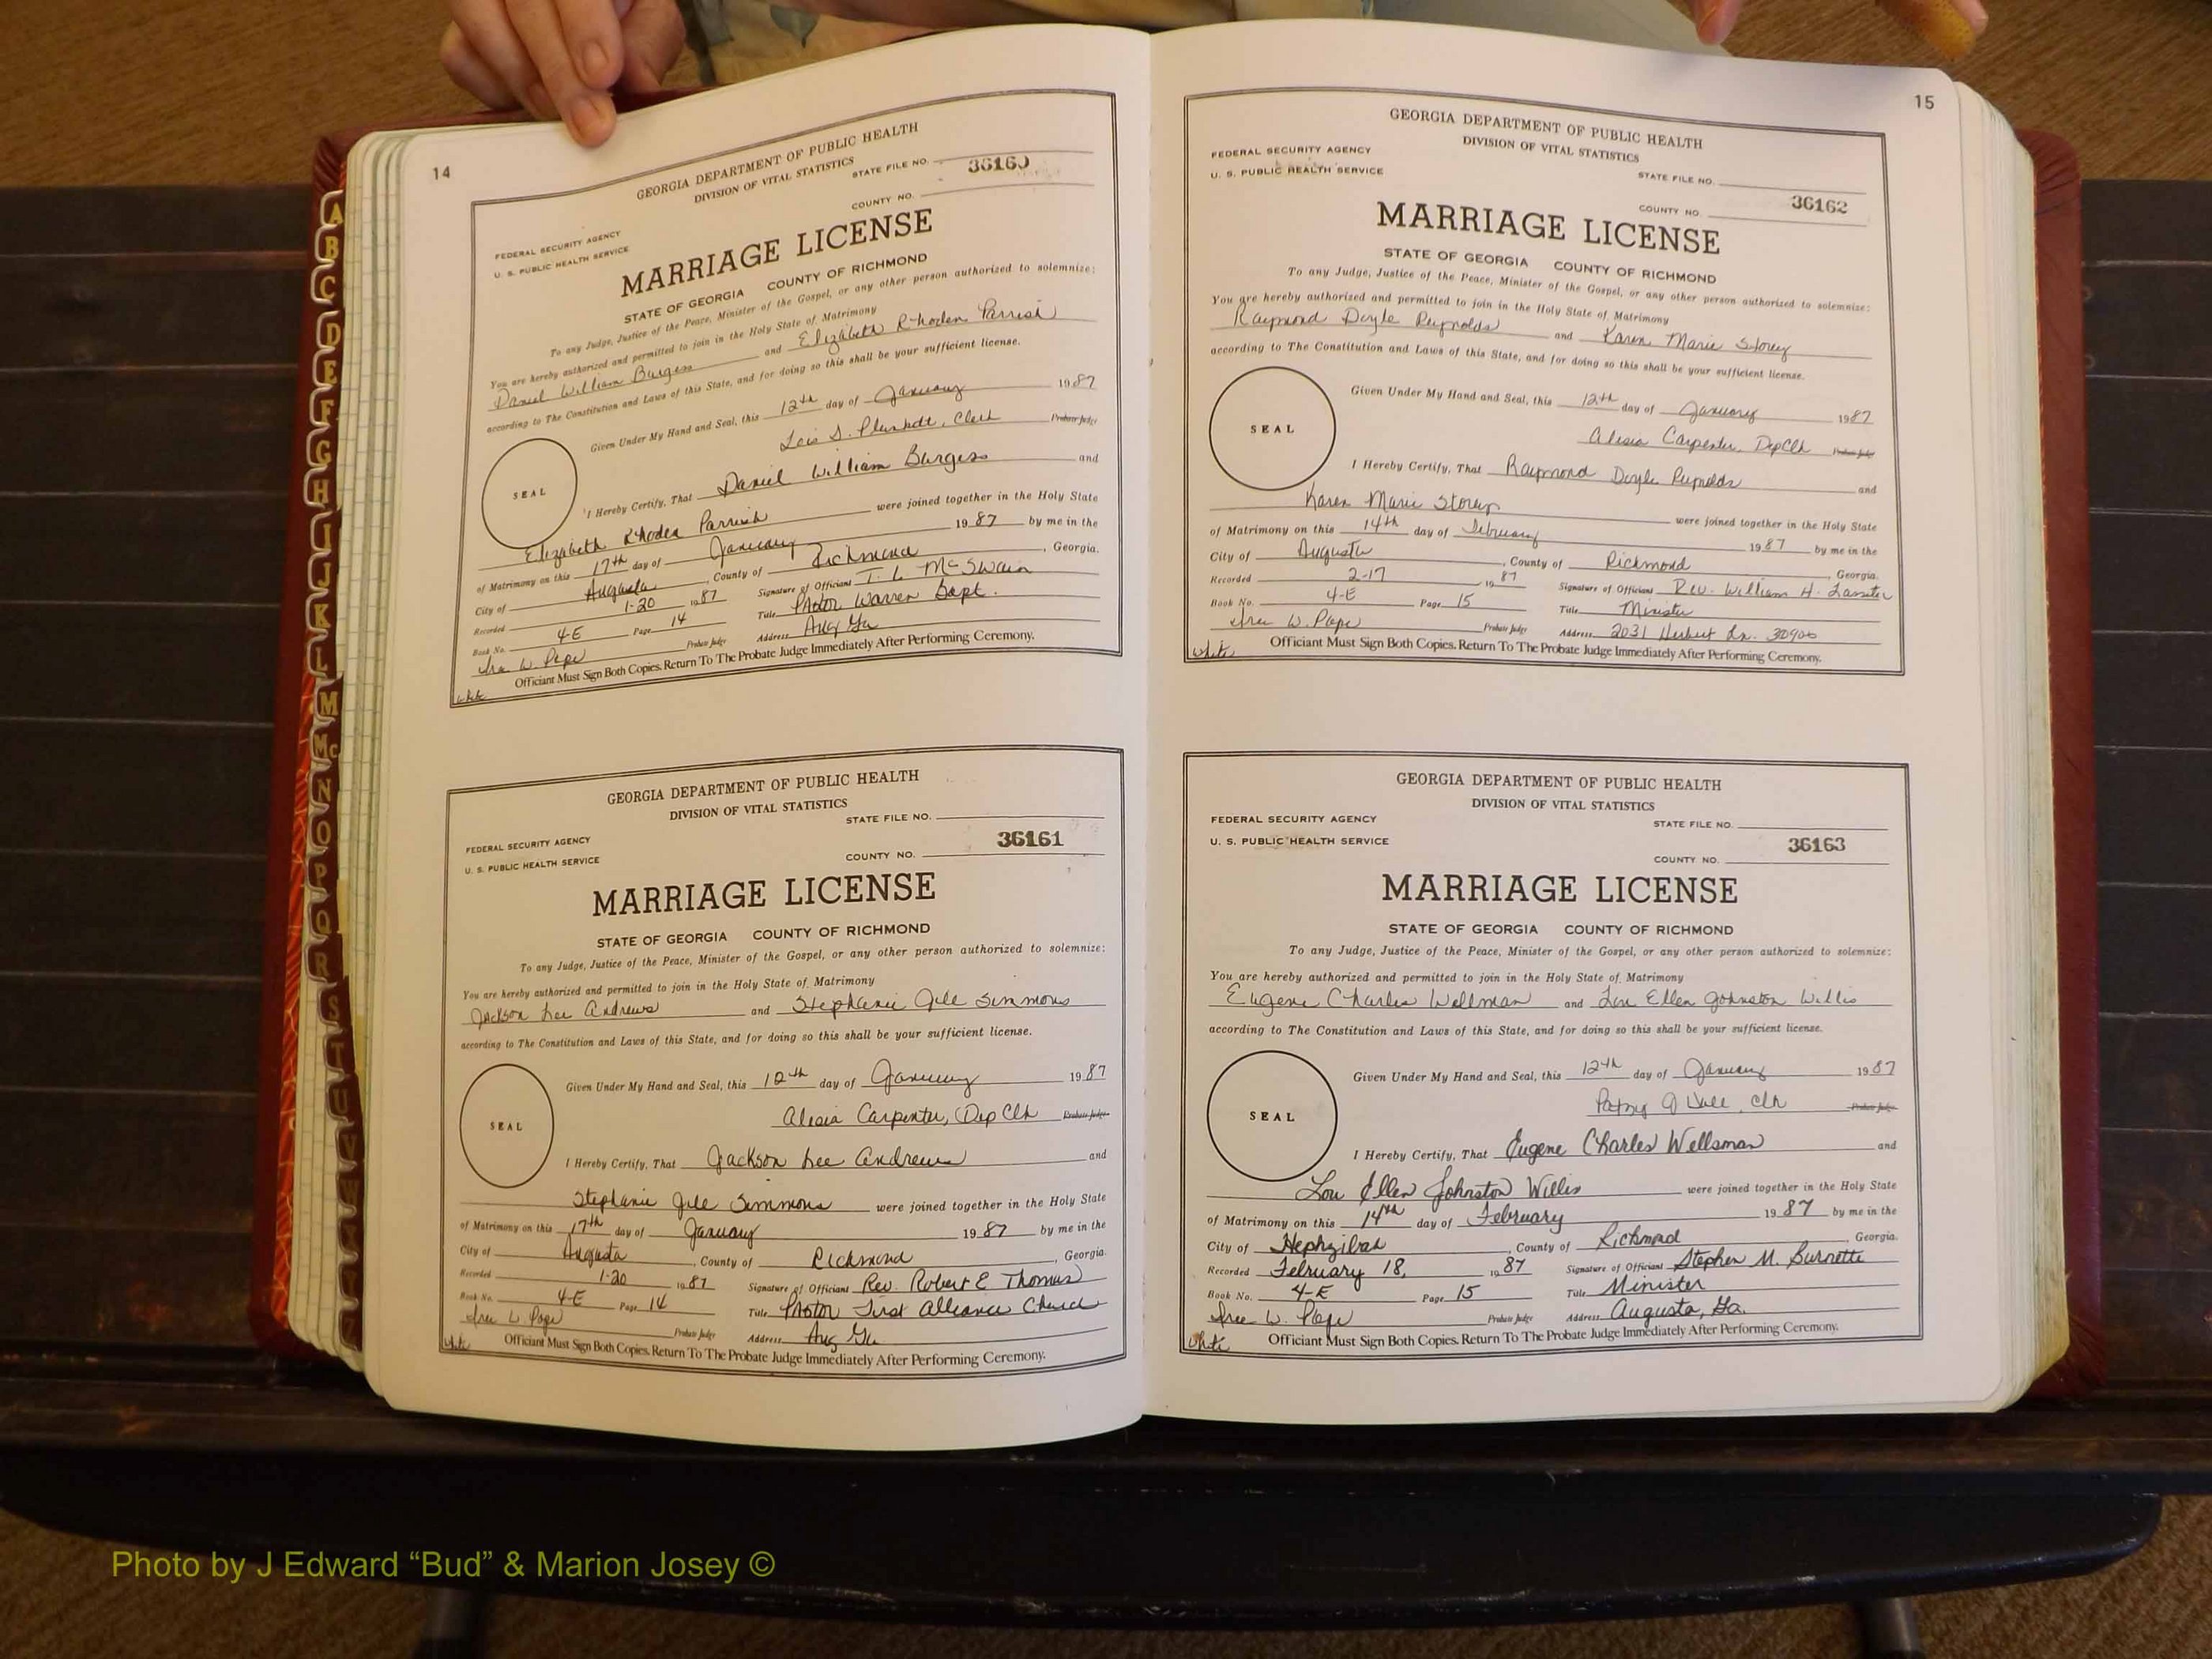 14
GEORGIA DEPARTMENT OF PUBLIC HEALTH
DIVISION OF VITAL STATISTICS
STATE FILE NO. 36160
COUNTY NO.
FEDERAL SECURITY AGENCY
U. S. PUBLIC HEALTH SERVICE
MARRIAGE LICENSE
STATE OF GEORGIA COUNTY OF RICHMOND
To any Judge, Justice of the Peace, Minister of the Gospel, or any other person authorized to solemnize:
You are hereby authorized and permitted to join in the Holy State of Matrimony
Daniel William Burgess and Elizabeth Rhoden Parrish
according to The Constitution and Laws of this State, and for doing so this shall be your sufficient license.
Given Under My Hand and Seal, this 12th day of January 1987
Lois S. Plunkett, Clerk Probate Judge
SEAL
I Hereby Certify, That Daniel William Burgess and
Elizabeth Rhoden Parrish were joined together in the Holy State
of Matrimony on this 17th day of January 1987 by me in the
City of Augusta, County of Richmond, Georgia.
Recorded 1-20 1987 Signature of Officiant T. L. McSwain
Book No. 4-E Page 14 Title Pastor Warren Bapt.
Ira W. Pope Probate Judge Address Aug Ga
White Officiant Must Sign Both Copies. Return To The Probate Judge Immediately After Performing Ceremony.
GEORGIA DEPARTMENT OF PUBLIC HEALTH
DIVISION OF VITAL STATISTICS
STATE FILE NO.
FEDERAL SECURITY AGENCY
36161
U. S. PUBLIC HEALTH SERVICE
COUNTY NO.
MARRIAGE LICENSE
STATE OF GEORGIA COUNTY OF RICHMOND
To any Judge, Justice of the Peace, Minister of the Gospel, or any other person authorized to solemnize:
You are hereby authorized and permitted to join in the Holy State of Matrimony
Jackson Lee Andrews and Stephanie Jile Simmons
according to The Constitution and Laws of this State, and for doing so this shall be your sufficient license.
Given Under My Hand and Seal, this 12th day of January 1987
Alesia Carpenter, Dep Clk Probate Judge
SEAL
I Hereby Certify, That Jackson Lee Andrews and
Stephanie Jile Simmons were joined together in the Holy State
of Matrimony on this 17th day of January 1987 by me in the
City of Augusta, County of Richmond, Georgia.
Recorded 1-20 1987 Signature of Officiant Rev. Robert E Thomas
Book No. 4-E Page 14 Title Pastor First Alliance Church
Ira W. Pope Probate Judge Address Aug Ga
White Officiant Must Sign Both Copies. Return To The Probate Judge Immediately After Performing Ceremony.
15
GEORGIA DEPARTMENT OF PUBLIC HEALTH
DIVISION OF VITAL STATISTICS
FEDERAL SECURITY AGENCY
U. S. PUBLIC HEALTH SERVICE
STATE FILE NO.
36162
COUNTY NO.
MARRIAGE LICENSE
STATE OF GEORGIA COUNTY OF RICHMOND
To any Judge, Justice of the Peace, Minister of the Gospel, or any other person authorized to solemnize:
You are hereby authorized and permitted to join in the Holy State of Matrimony
Raymond Doyle Reynolds and Karen Marie Storey
according to The Constitution and Laws of this State, and for doing so this shall be your sufficient license.
Given Under My Hand and Seal, this 12th day of January 1987
Alesia Carpenter, Dep Clk Probate Judge
SEAL
I Hereby Certify, That Raymond Doyle Reynolds and
Karen Marie Storey were joined together in the Holy State
of Matrimony on this 14th day of February 1987 by me in the
City of Augusta, County of Richmond, Georgia.
Recorded 2-17 1987 Signature of Officiant Rev. William H. Lassiter
Book No. 4-E Page 15 Title Minister
Ira W. Pope Probate Judge Address 2031 Ln. 30906
White Officiant Must Sign Both Copies. Return To The Probate Judge Immediately After Performing Ceremony.
GEORGIA DEPARTMENT OF PUBLIC HEALTH
DIVISION OF VITAL STATISTICS
FEDERAL SECURITY AGENCY
STATE FILE NO.
U. S. PUBLIC HEALTH SERVICE
36163
COUNTY NO.
MARRIAGE LICENSE
STATE OF GEORGIA COUNTY OF RICHMOND
To any Judge, Justice of the Peace, Minister of the Gospel, or any other person authorized to solemnize:
You are hereby authorized and permitted to join in the Holy State of Matrimony
Eugene Charles Wellman and Lou Ellen Johnston Willis
according to The Constitution and Laws of this State, and for doing so this shall be your sufficient license.
Given Under My Hand and Seal, this 12th day of January 1987
Clk Probate Judge
SEAL
I Hereby Certify, That Eugene Charles Wellsman and
Lou Ellen Johnston Willis were joined together in the Holy State
of Matrimony on this 14th day of February 1987 by me in the
City of Hephzibah, County of Richmond, Georgia.
Recorded February 18, 1987 Signature of Officiant Stephen M. Burnette
Book No. 4-E Page 15 Title Minister
Ira W. Pope Probate Judge Address Augusta, Ga.
White Officiant Must Sign Both Copies. Return To The Probate Judge Immediately After Performing Ceremony.
A
B
C
D
E
F
G
H
I
J
K
L
M
Mc
N
O
P
Q
R
S
T
U
Photo by J Edward “Bud” & Marion Josey ©